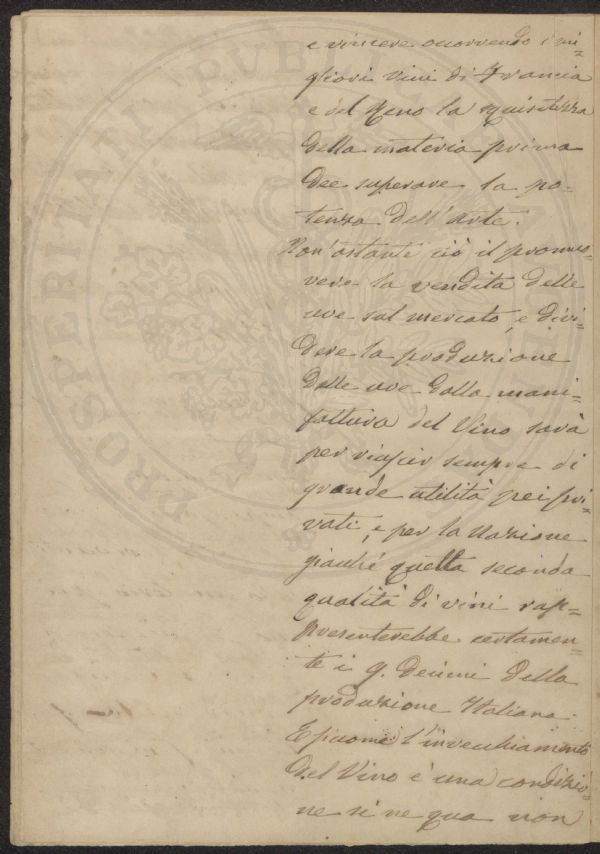 e vincere occorrendo i mi=
gliori vini di Francia
e del Reno la squisitezza
della materia prima
dee superare la po=
tenza dell'arte.
Non'ostante ciò il promuo=
vere la vendita delle
uve sul mercato, e divi=
dere la produzione
delle uve dalla mani=
fattura del Vino sarà
per riuscir sempre di
grande utilità pei pri=
vati, e per la Nazione
giacchè quella seconda
qualità di vini rap=
presenterebbe certamen=
te i 9. Decimi della
produzione Italiana.
E siccome l'invecchiamento
del Vino è una condizio=
ne si ne qua non
PROSPERITATI PUBLICAE